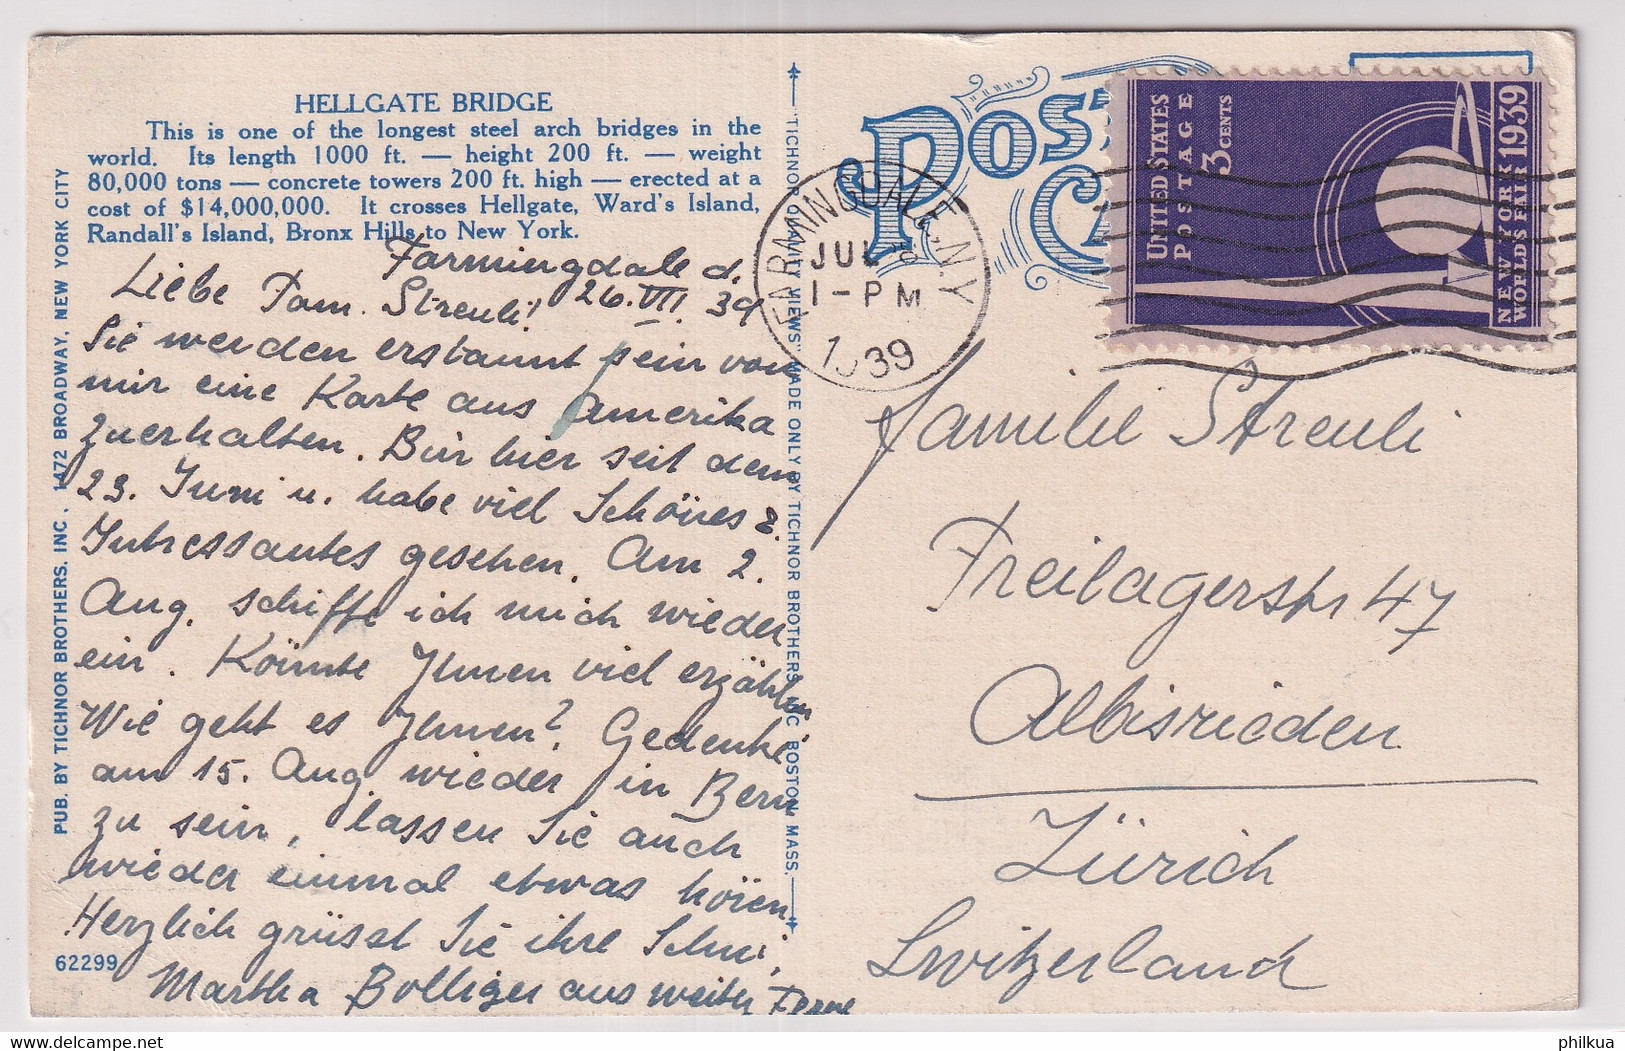 HELLGATE BRIDGE
This is one of the longest steel arch bridges in the
world. Its length 1000 ft. — height 200 ft. — weight
80,000 tons — concrete towers 200 ft. high — erected at a
cost of $14,000,000. It crosses Hellgate, Ward's Island,
Randall's Island, Bronx Hills to New York.
Farmingdale d.
26. VII. 39
Liebe Fam. Streuli!
Sie werden erstaunt sein von
mir eine Karte aus Amerika
zuerhalten. Bin hier seit dem
23. Juni u. habe viel Schönes &
Intressantes gesehen. Am 2.
Aug. schiffe ich mich wieder
ein. Könnte Ihnen viel erzählen
Wie geht es Ihnen? Gedenke
am 15. Aug. wieder in Bern
zu sein, lassen Sie auch
wieder einmal etwas hören
Herzlich grüsst Sie ihre
Martha Bolliger aus weiter Ferne
62299
PUB. BY TICHNOR BROTHERS, INC., 1472 BROADWAY, NEW YORK CITY
"TICHNOR QUALITY VIEWS" MADE ONLY BY TICHNOR BROTHERS INC BOSTON, MASS.
POST
FARMINGDALE, N.Y.
JUL
1-PM
1939
UNITED STATES
POSTAGE
3 CENTS
NEW YORK
WORLDS FAIR 1939
Familie Streuli
Freilagerstr 47
Albisrieden
Zürich
Switzerland
philkua